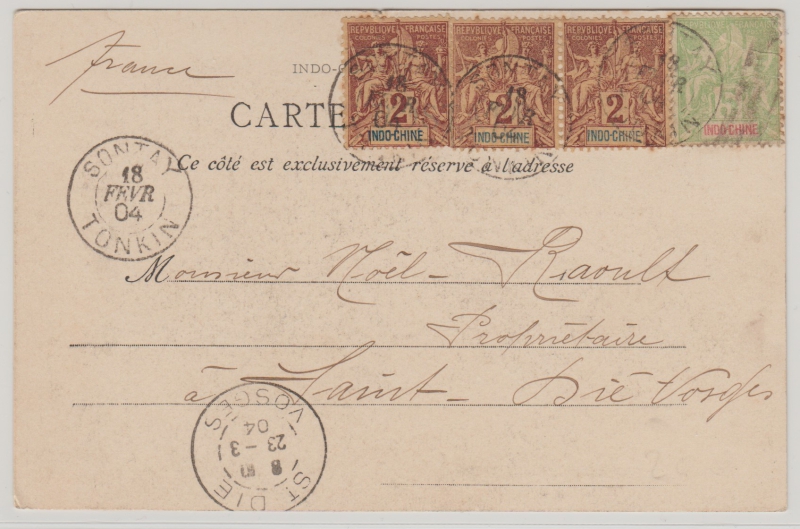 France
INDO-
CARTE
RÉPUBLIQUE FRANÇAISE
COLONIES POSTES
2
INDO-CHINE
RÉPUBLIQUE FRANÇAISE
COLONIES POSTES
2
INDO-CHINE
RÉPUBLIQUE FRANÇAISE
COLONIES POSTES
2
INDO-CHINE
INDO-CHINE
SONTAY
18
FEVR
04
TONKIN
Ce côté est exclusivement réservé à l'adresse
Monsieur Noël-Raoult
Propriétaire
à Saint-Dié Vosges
ST DIE
8
23 - 3
04
VOSGES